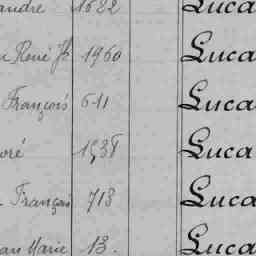 andré 1622 Luca
René Jh 1960 Luca
François 611 Luca
oré 1538 Luca
François 713 Luca
an Marie 13. Luca